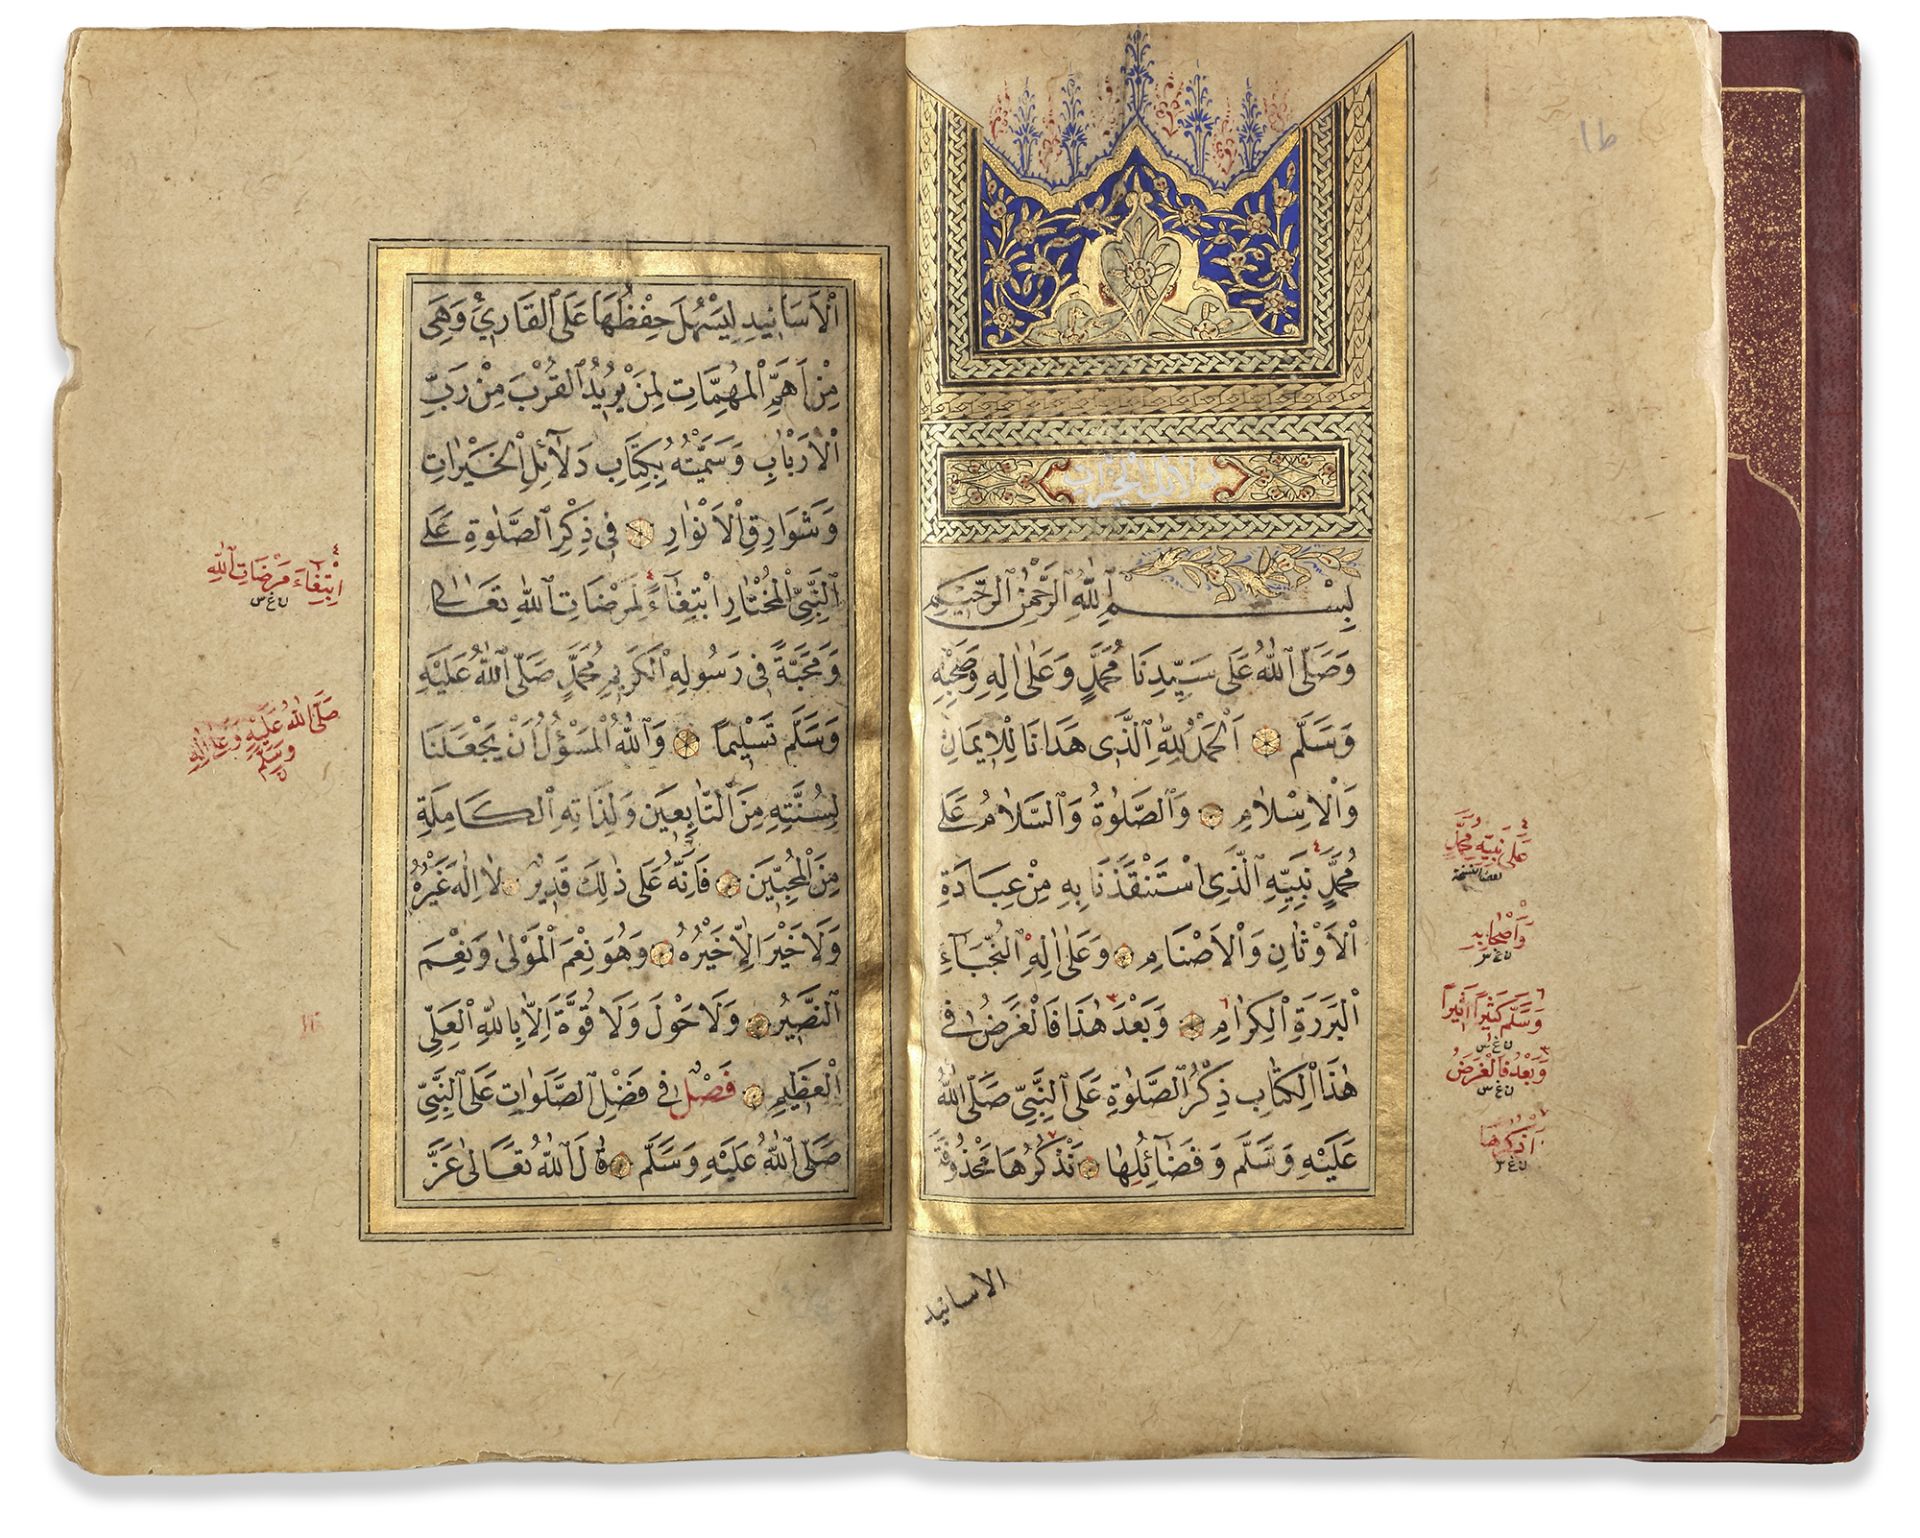 دلائل الخيرات
بِسْمِ اللّٰهِ الرَّحْمٰنِ الرَّحِيمِ
وَصَلَّى اللّٰهُ عَلَى سَيِّدِنَا مُحَمَّدٍ وَعَلٰى اٰلِهِ وَصَحْبِهِ
وَسَلَّمَ اَلْحَمْدُ لِلّٰهِ الَّذِى هَدَانَا لِلْاِيمَانِ
وَالْاِسْلَامِ وَالصَّلٰوةُ وَالسَّلَامُ عَلٰى
مُحَمَّدٍ نَبِيِّهِ الَّذِى اسْتَنْقَذَنَا بِهِ مِنْ عِبَادَةِ
الْاَوْثَانِ وَالْاَصْنَامِ وَعَلٰى اٰلِهِ النُّجَبَآءِ
الْبَرَرَةِ الْكِرَامِ وَبَعْدَ هٰذَا فَالْغَرَضُ فِى
هٰذَا الْكِتَابِ ذِكْرُ الصَّلٰوةِ عَلَى النَّبِيِّ صَلَّى اللّٰهُ
عَلَيْهِ وَسَلَّمَ وَفَضَآئِلِهَا نَذْكُرُهَا مَحْذُوفَةَ
الاسانيد
عَلٰى نَبِيِّهِ مُحَمَّدٍ
وَاَصْحَابِهِ
ن غ س
وَسَلَّمَ كَثِيرًا اَثِيرًا
ن غ س
وَبَعْدُ فَالْغَرَضُ
ن غ س
اَذْكُرُهَا
ن غ س
الْاَسَانِيدِ لِيَسْهُلَ حِفْظُهَا عَلَى الْقَارِئِ وَهِىَ
مِنْ اَهَمِّ الْمُهِمَّاتِ لِمَنْ يُرِيدُ الْقُرْبَ مِنْ رَبِّ
الْاَرْبَابِ وَسَمَّيْتُهُ بِكِتَابِ دَلَآئِلِ الْخَيْرَاتِ
وَشَوَارِقِ الْاَنْوَارِ فِى ذِكْرِ الصَّلٰوةِ عَلَى
النَّبِيِّ الْمُخْتَارِ ابْتِغَآءً لِمَرْضَاتِ اللّٰهِ تَعَالٰى
وَمَحَبَّةً فِى رَسُولِهِ الْكَرِيمِ مُحَمَّدٍ صَلَّى اللّٰهُ عَلَيْهِ
وَسَلَّمَ تَسْلِيمًا وَاللّٰهُ الْمَسْؤُلُ اَنْ يَجْعَلَنَا
لِسُنَّتِهِ مِنَ التَّابِعِينَ وَلِذَاتِهِ الْكَامِلَةِ
مِنَ الْمُحِبِّينَ فَاِنَّهُ عَلَى ذٰلِكَ قَدِيرٌ لَا اِلٰهَ غَيْرُهُ
وَلَا خَيْرَ اِلَّا خَيْرُهُ وَهُوَ نِعْمَ الْمَوْلٰى وَنِعْمَ
النَّصِيرُ وَلَا حَوْلَ وَلَا قُوَّةَ اِلَّا بِاللّٰهِ الْعَلِىِّ
الْعَظِيمِ فَصْلٌ فِى فَضْلِ الصَّلَوَاتِ عَلَى النَّبِيِّ
صَلَّى اللّٰهُ عَلَيْهِ وَسَلَّمَ قَالَ اللّٰهُ تَعَالٰى عَزَّ
اِبْتِغَآءَ مَرْضَاتِ اللّٰهِ
ن غ س
صَلَّى اللّٰهُ عَلَيْهِ وَعَلٰى اٰلِهِ
وَسَلَّمَ